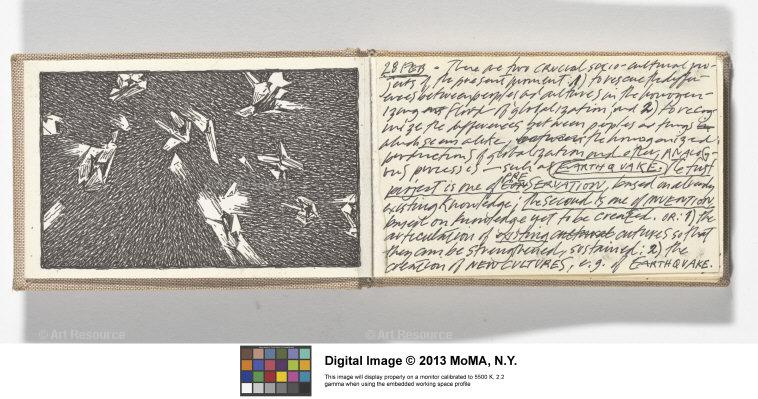 28 FEB - There are two crucial socio-cultural pro-
jects of the present moment: 1) to rescue the differ-
ences between peoples and cultures in the homogen-
izing flood of globalization; and 2) to recog-
nize the differences between people or things
which seem alike, the homogenized
productions of globalization and other, analog-
ous processes — such as EARTHQUAKE. The first
project is one of PRESERVATION, based on already
existing knowledge; the second is one of INVENTION
based on knowledge yet to be created. OR: 1) the
articulation of existing cultures so that
they can be strengthened, sustained; 2) the
creation of NEW CULTURES, e.g. of EARTHQUAKE.
© Art Resource
© Art Resource
Digital Image © 2013 MoMA, N.Y.
This image will display properly on a monitor calibrated to 5500 K, 2.2
gamma when using the embedded working space profile